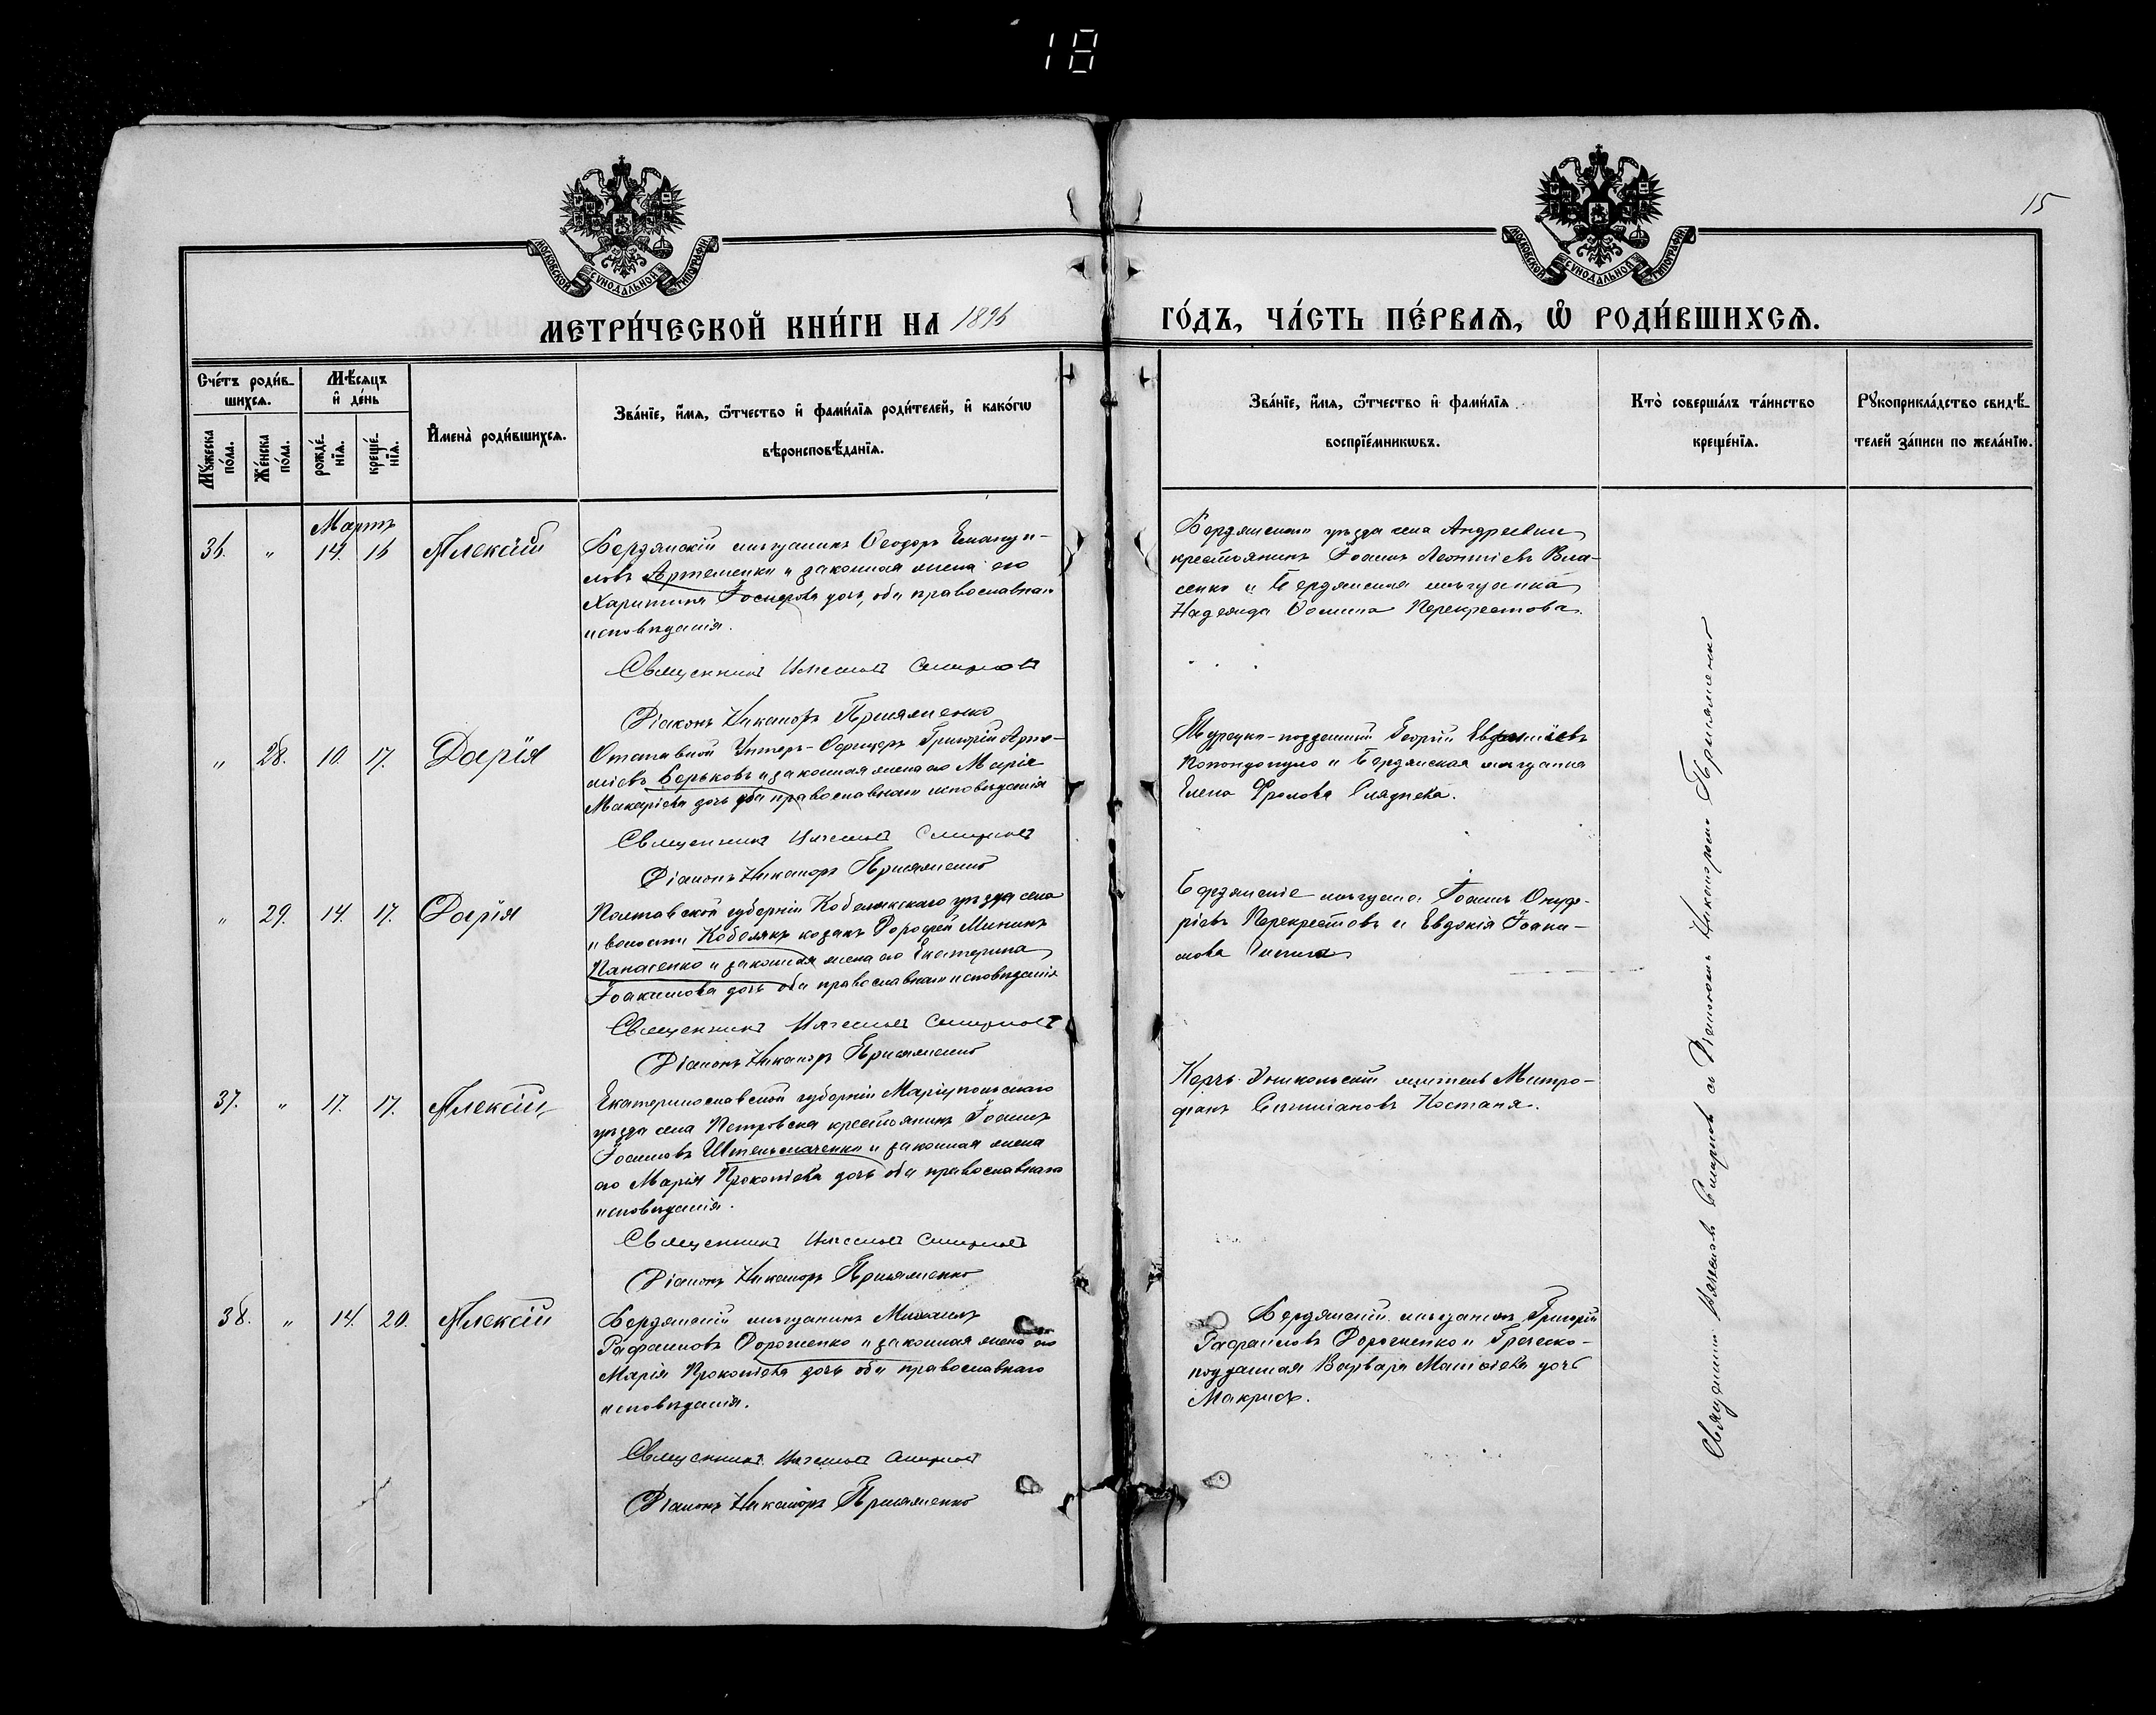 18
15
МОСКОВСКОЙ СѴНОДАЛЬНОЙ ТИПОГРАФІИ
МОСКОВСКОЙ СѴНОДАЛЬНОЙ ТИПОГРАФІИ
МЕТРИ́ЧЕСКОЙ КНИ́ГИ НА 1896
ГО́ДЪ, ЧА́СТЬ ПЕ́РВАѦ, Ѡ҆ РОДИ́ВШИХСѦ.
Сче́тъ роди́в-
шихсѧ.
Мѹ́жеска
по́ла.
Же́нска
по́ла.
Мѣ́сѧцъ
и҆ де́нь
рожде́-
нїѧ.
креще́-
нїѧ.
И҆мена̀ роди́вшихсѧ.
Зва́нїе, и҆́мѧ, ѻ҆́тчество и҆ фами́лїѧ роди́телей, и҆ како́гѡ
вѣроисповѣ́данїѧ.
Зва́нїе, и҆́мѧ, ѻ҆́тчество и҆ фами́лїѧ
воспрїе́мникѡвъ.
Кто̀ соверша́лъ та́инство
креще́нїѧ.
Рѹкоприкла́дство свидѣ́-
телей за́писи по жела́нїю.
Мартъ
36. " 14. 16 Алексій
Бердянскій мѣщанинъ Ѳеодоръ Емануи-
ловъ Артеменко и законная жена его
Харитина дочь, оба православнаго
исповѣданія.
Священникъ Смирновъ
Діаконъ Никаноръ Присяженко
Бердянскаго уѣзда села Андреевки
крестьянинъ Іоаннъ Леонтіевъ Вла-
сенко и Бердянская мѣщанка
Надежда Ѳомина Перекрестова.
" 28. 10. 17. Дарія
Отставной Унтеръ-Офицеръ Григорій Арте-
міевъ Борьковъ и законная жена его Марія
Макаріева дочь оба православнаго исповѣданія
Священникъ Смирновъ
Діаконъ Никаноръ Присяженко
Турецко-подданный Георгій Евфиміевъ
Попондопуло и Бердянская мѣщанка
Елена Фролова
" 29. 14. 17. Дарія
Полтавской губерніи Кобелякскаго уѣзда села
и волости Кобелякъ козакъ Дорофей Мининъ
Панасенко и законная жена его Екатерина
Іоакимова дочь оба православнаго исповѣданія
Священникъ Смирновъ
Діаконъ Никаноръ Присяженко
Бердянскіе мѣщане Іоаннъ Онуф-
ріевъ Перекрестовъ и Евдокія Іоаки-
мова
37. " 17. 17. Алексій
Екатеринославской губерніи Маріупольскаго
уѣзда села Петровска крестьянинъ Іоаннъ
Іоанновъ Штельмаченко и законная жена
его Марія Прокопіева дочь оба православнаго
исповѣданія.
Священникъ Смирновъ
Діаконъ Никаноръ Присяженко
Керчь-Эникольскій житель Митро-
фанъ Костаня.
38. " 14. 20. Алексій
Бердянскій мѣщанинъ Михаилъ
Рафаиловъ Дорошенко и законная жена его
Марія Прокопіева дочь оба православнаго
исповѣданія.
Священникъ Смирновъ
Діаконъ Никаноръ Присяженко
Бердянскій мѣщанинъ Григорій
Рафаиловъ Дорошенко и Греческо-
подданная Варвара дочь
Макрисъ.
Священникъ Смирновъ съ Діакономъ Никаноромъ Присяженко